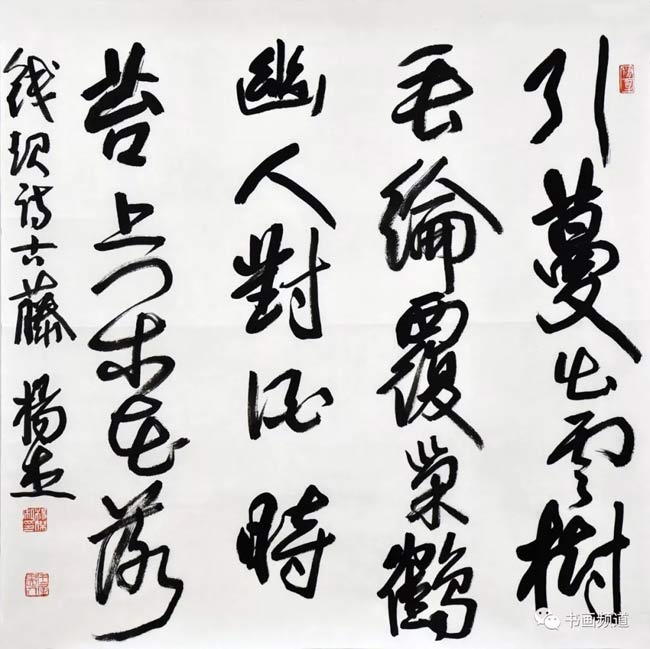 引蔓出雲樹
垂綸覆巢鶴
幽人對酒時
苔上閑花落
錢起詩古藤 楊
书画频道